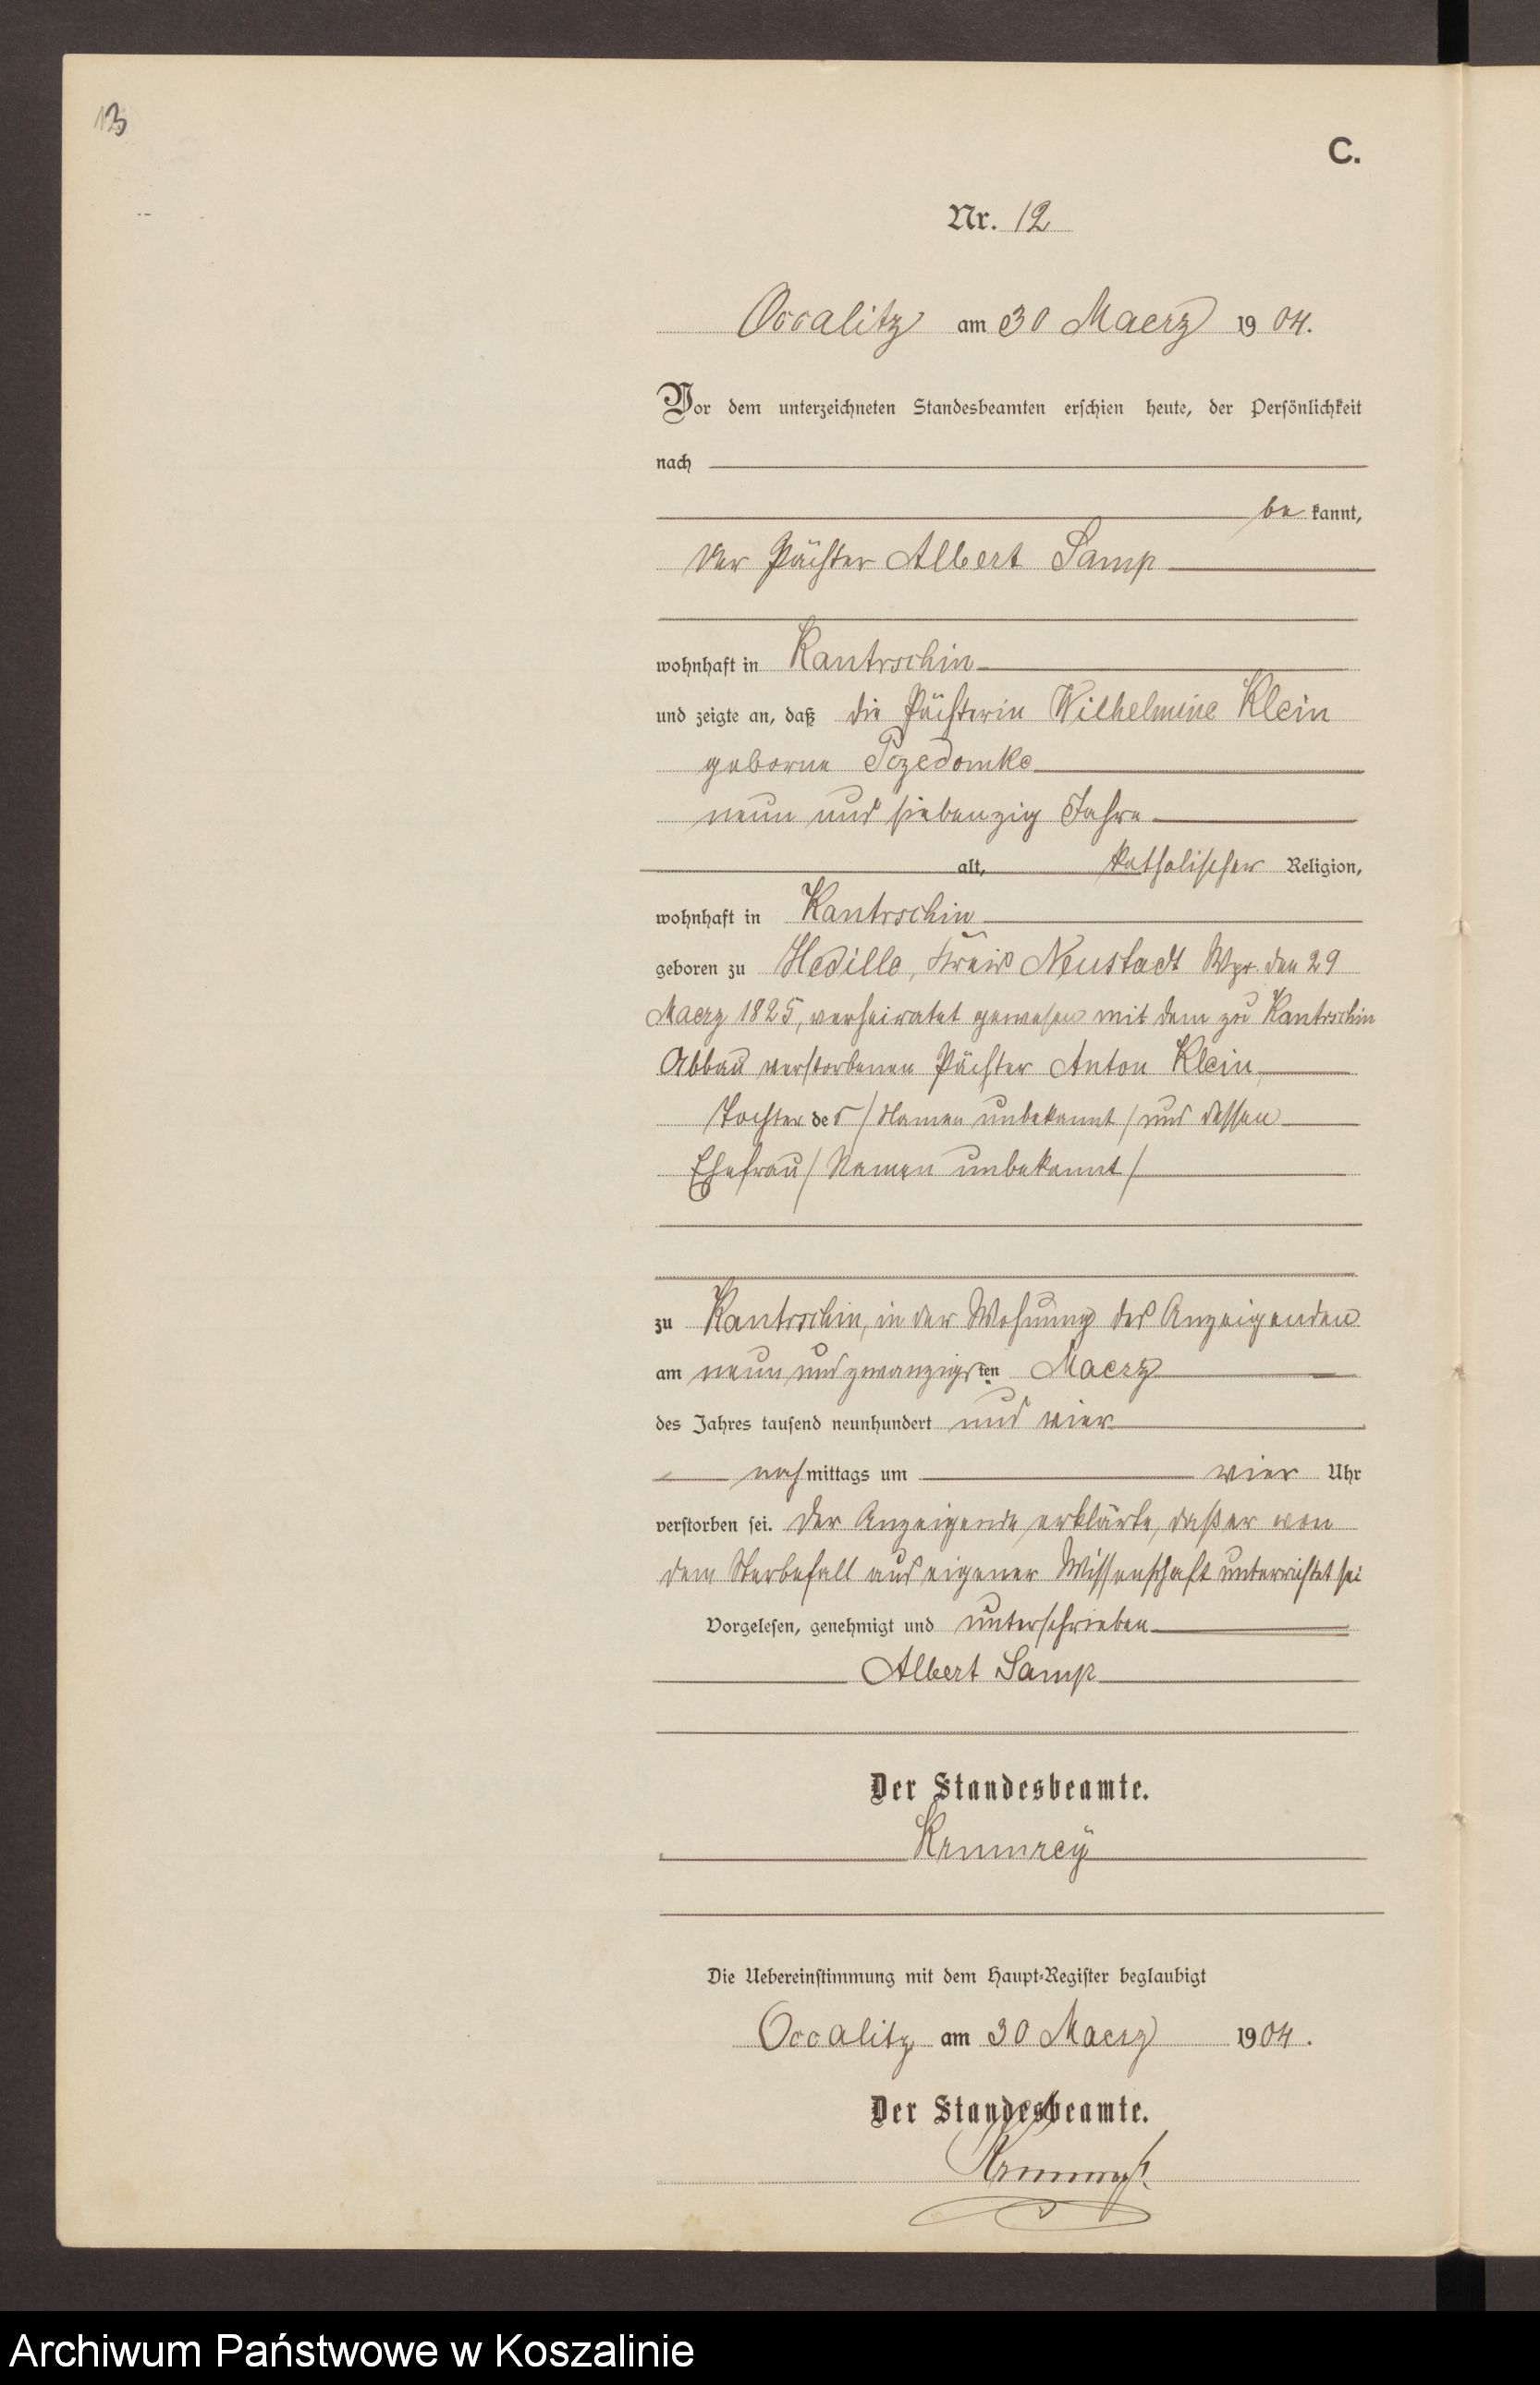 13
C.
Nr. 12
Occalitz am 30 Maerz 1904.
Vor dem unterzeichneten Standesbeamten erschien heute, der Persönlichkeit
nach
be kannt,
der Pächter Albert Samp
wohnhaft in Kantrschin
und zeigte an, daß die Pächterin Wilhelmine Klein
geborne Pozedomke
neun und siebenzig Jahre
alt, katholischer Religion,
wohnhaft in Kantrschin
geboren zu Hedille, Kreis Neustadt Wpr. den 29
Maerz 1825, verheiratet gewesen mit dem zu Kantrschin
Abbau verstorbenen Pächter Anton Klein
Tochter des / Namen unbekannt / und dessen
Ehefrau / Namen unbekannt /
zu Kantrschin, in der Wohnung des Anzeigenden
am neun und zwanzigsten Maerz
des Jahres tausend neunhundert und vier
nachmittags um vier Uhr
verstorben sei. Der Anzeigende erklärte, daß er von
dem Sterbefall aus eigener Wissenschaft unterrichtet sei
Vorgelesen, genehmigt und unterschrieben
Albert Samp
Der Standesbeamte.
Krumrey
Die Uebereinstimmung mit dem Haupt-Register beglaubigt
Occalitz am 30 Maerz 1904.
Der Standesbeamte.
Krumrey
Archiwum Państwowe w Koszalinie